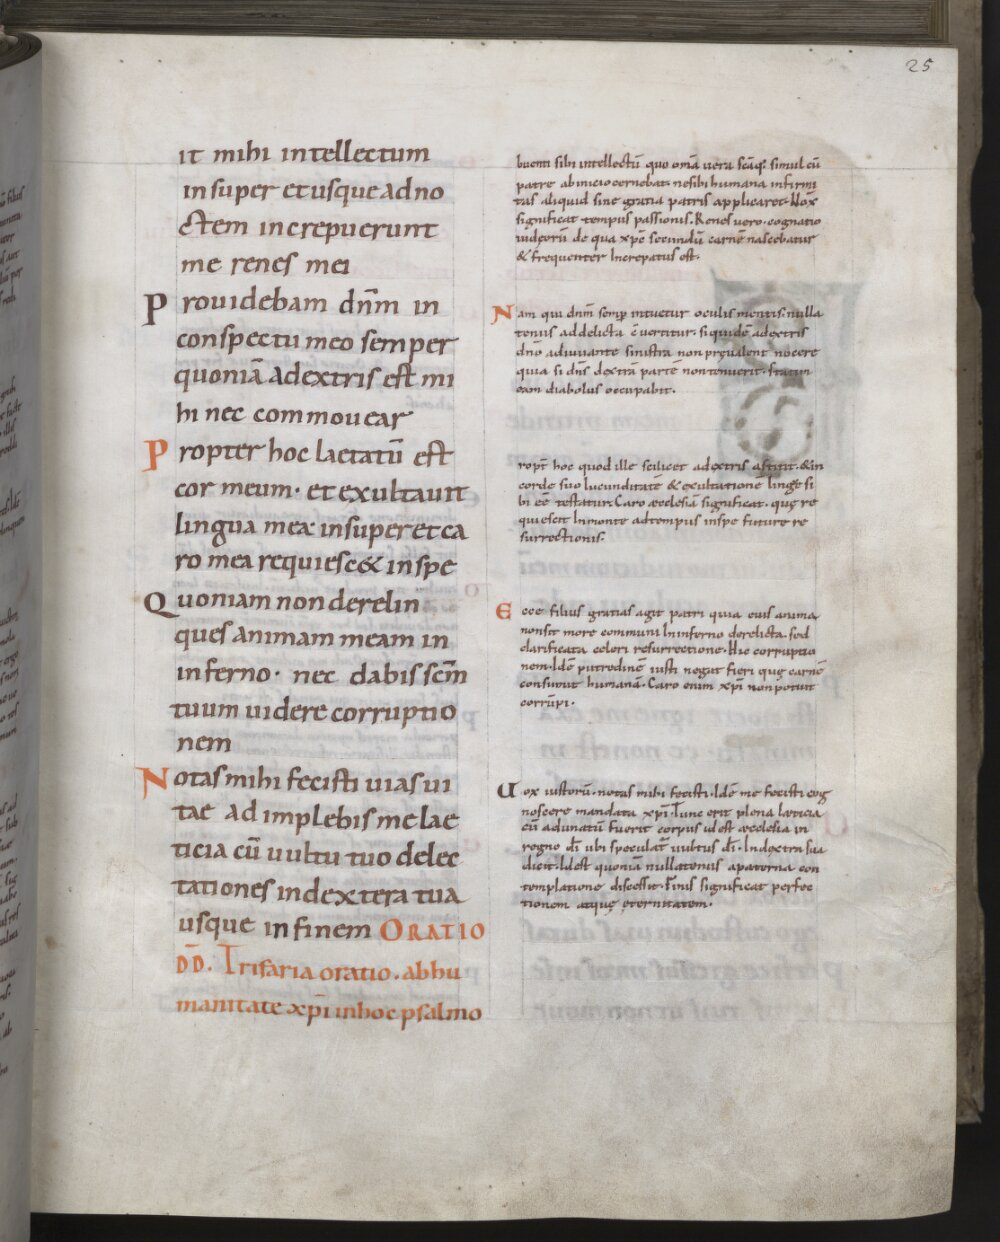 25
it mihi intellectum
insuper et usque ad no
ctem increpuerunt
me renes mei
Prouidebam dn̄m in
conspectu meo semper
quoniā a dextris est mi
hi nec commouear
Propter hoc laetatū est
cor meum· et exultauit
lingua mea· insuper et ca
ro mea requiesc& in spe
Quoniam non derelin
ques animam meam in
inferno· nec dabis sc̄m
tuum uidere corruptio
nem
Notas mihi fecisti uias ui
tae adimplebis me lae
ticia cū uultu tuo delec
tationes in dextera tua
usque in finem ORATIO
DD̄. Trifaria oratio. ab hu
manitate xp̄i in hoc psalmo
buenti sibi intellectū quo om̄a uera scāq· simul cū
patre ab inicio cernebat· ne sibi humana infirmi
tas aliquid sine gratia patris applicaret· Nox
significat tempus passionis. Renes uero· cognatio
iudeorū de qua xp̄c secundū carnē nascebatur
& frequenter increpatus est·
Nam qui dn̄m semp intuetur oculis mentis· nulla
tenus ad delicta c̄uertitur· siquidē a dextris
dn̄o adiuuante sinistra non pręualent nocere
quia si dn̄s dextrā partē non tenuerit· statim
eam diabolus occupabit·
ropt̄ hoc quod ille scilicet a dextris astitit· & in
corde suo iucunditatē & exultationē linge si
bi eē testatur. Caro aecclesiā significat· quę re
quiescit in monte ad tempus in spe future re
surrectionis·
Ecce filius gratias agit patri quia eius anima
non sit more communi in inferno derelicta· sed
clarificata celeri resurrectione· Hic corruptio
nem· Idē putredinē iusti negat fieri quę carnē
consumit humanā· Caro enim xp̄i non potuit
corrūpi·
Uox iustorū· notas mihi fecisti· Idē me fecisti cog
noscere mandata xp̄i· Tunc erit plena laeticia
cū adunatū fuerit corpus id est aecclesia in
regno dī ubi speculat̄ uultus dī· In dextra sua
dicit· Id est quoniā nullatenus a paterna con
templatione discessit· Finis significat perfec
tionem atque ęternitatem·